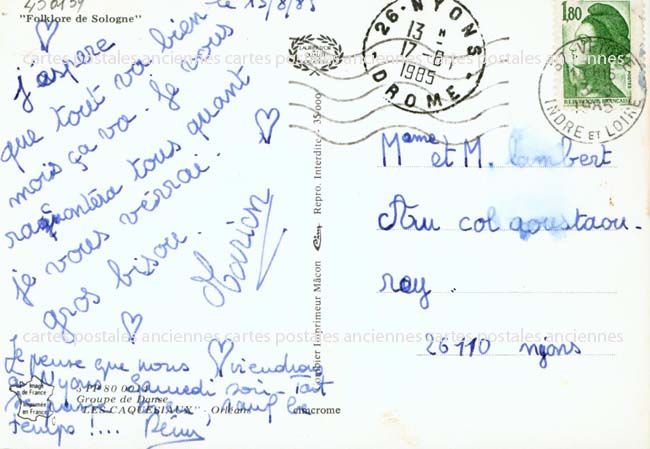 450159
"Folklore de Sologne"
le 15/8/85
j'aspere
que tout va bien
mois ça va. Je vous
raquontéra tous quant
je vous vérrai.
gros bisou.
Marion
Je pense que nous viendrons
à Nyons Samedi soir - Tout
se passe bien, sauf le
temps !...
Image de France
Imprimée en France
Groupe de Danse
"LES CAQUESIAUX" - Orléans
cimcrome
Combier Imprimeur Mâcon Cim Repro. Interdite - 35/000
26 - NYONS
13 H
17 - 8
1985
DROME
1,80
INDRE ET LOIRE
Mame et M. lambert
Au col goustaou-
ray
26110 nyons
cartes postales anciennes cartes postales anciennes cartes postales anciennes
cartes postales anciennes cartes postales anciennes cartes postales anciennes